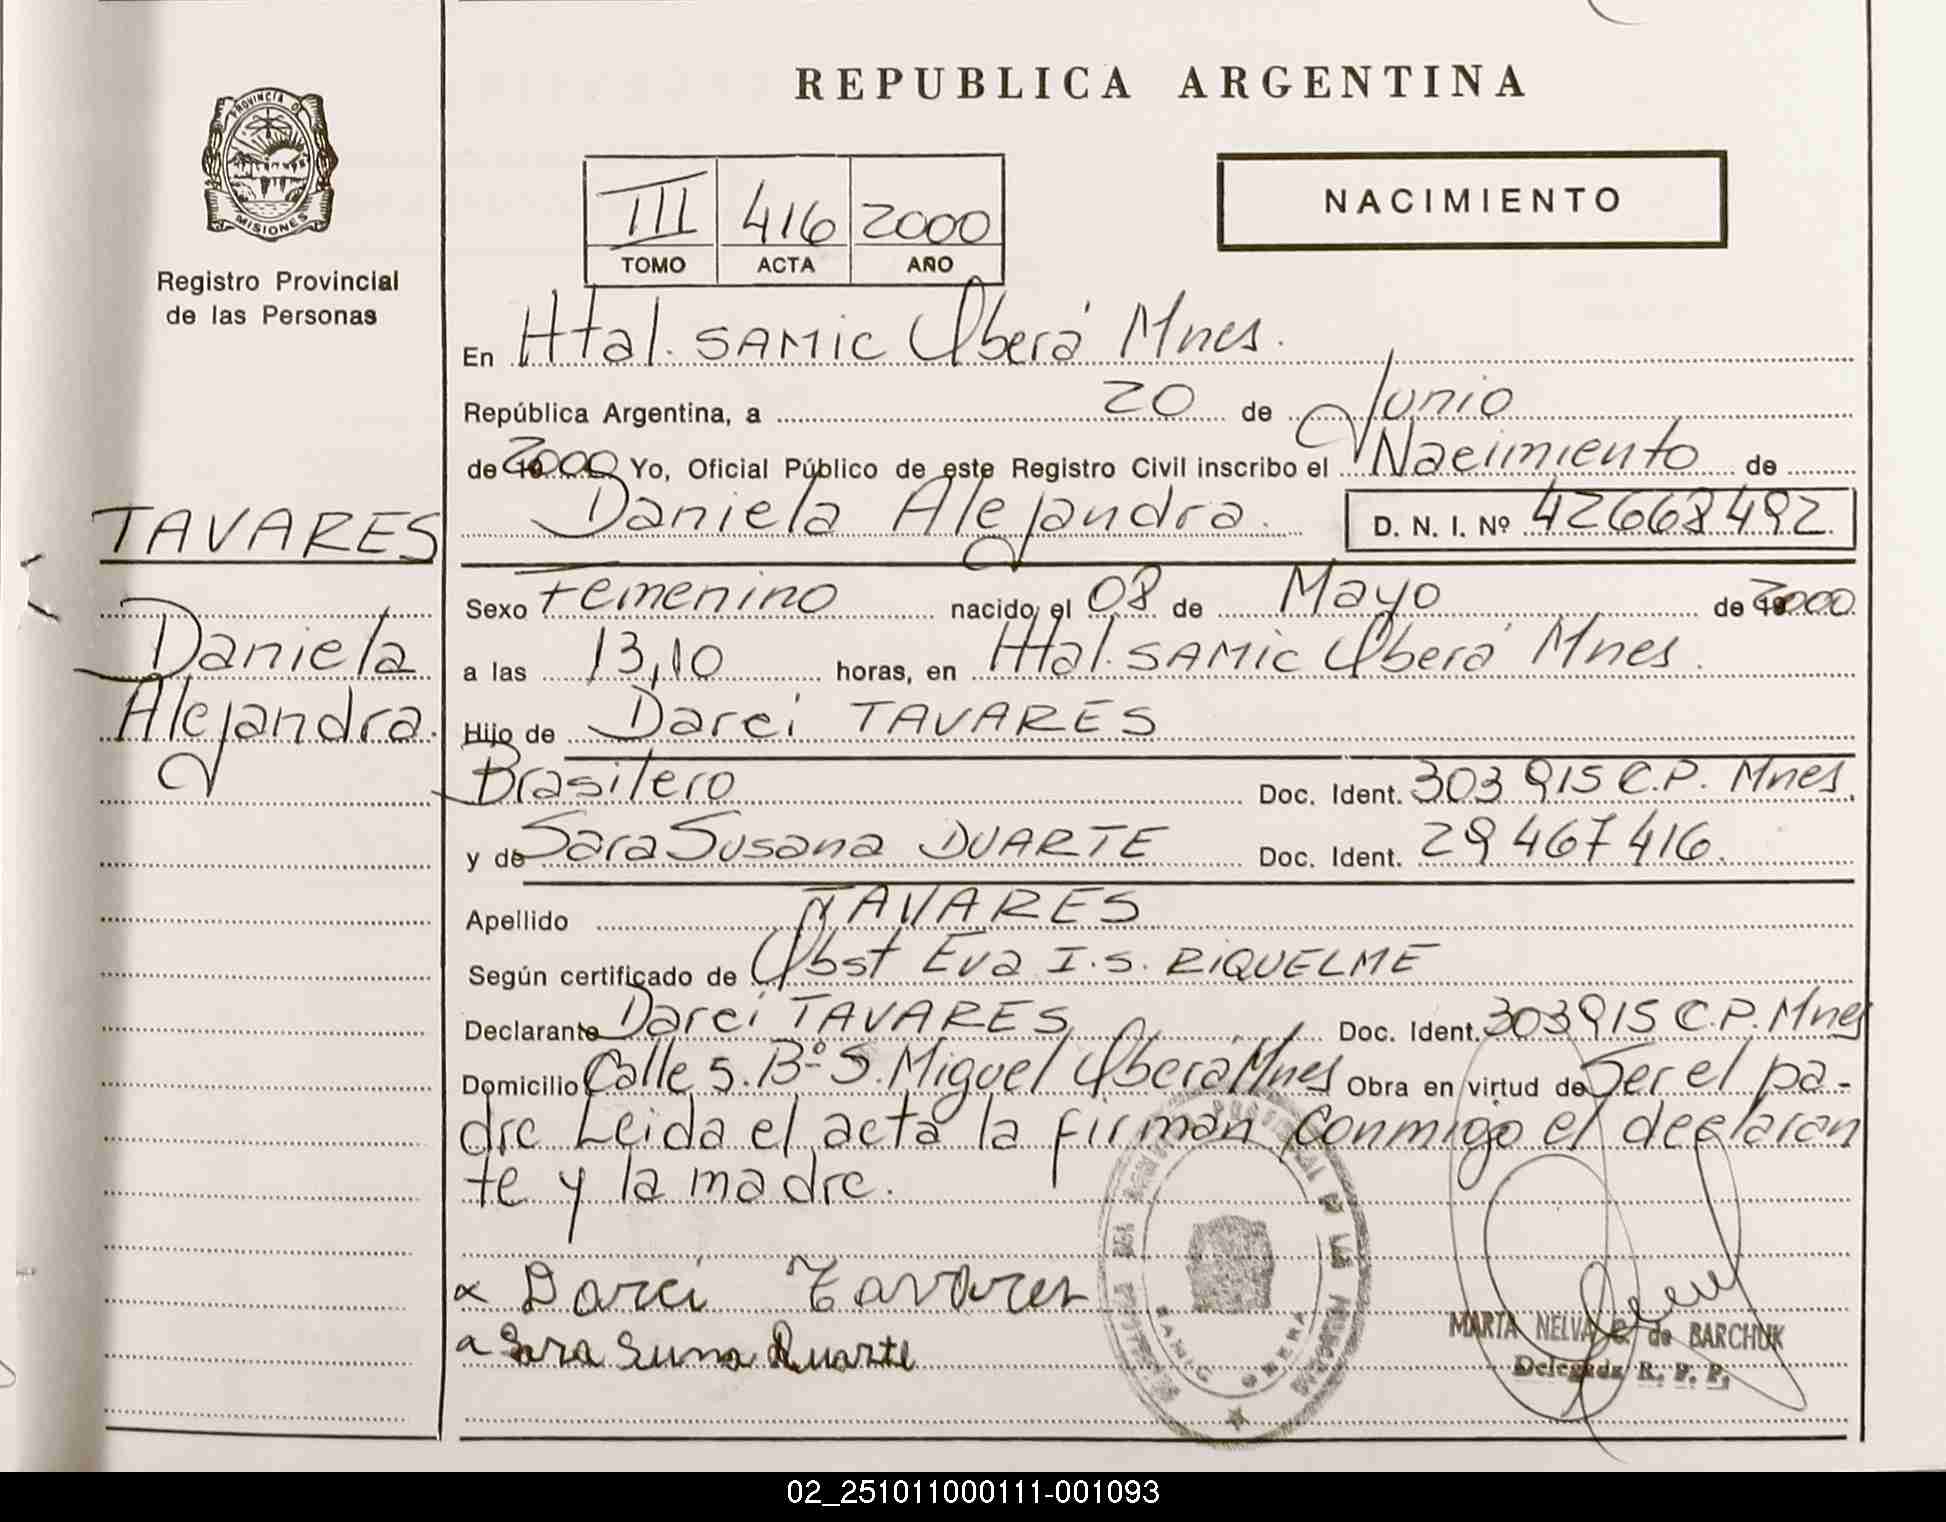 REPUBLICA ARGENTINA
PROVINCIA DE
MISIONES
Registro Provincial
de las Personas
III 416 2000
TOMO ACTA AÑO
NACIMIENTO
En Htal. SAMIC Oberá Mnes.
República Argentina, a 20 de Junio
de 2000 Yo, Oficial Público de este Registro Civil inscribo el Nacimiento de
Daniela Alejandra. D. N. I. Nº 42668492.
TAVARES
Daniela
Alejandra.
Sexo Femenino nacido el 08 de Mayo de 2000
a las 13,10 horas, en Htal. SAMIC Oberá Mnes.
Hijo de Darci TAVARES
Brasilero Doc. Ident. 303915 C.P. Mnes.
y de Sara Susana DUARTE Doc. Ident. 29467416.
Apellido TAVARES
Según certificado de Obst Eva I.S. RIQUELME
Declarante Darci TAVARES Doc. Ident. 303915 C.P. Mnes
Domicilio Calle 5. Bº S. Miguel Oberá Mnes Obra en virtud de Ser el pa-
dre Leida el acta la firman conmigo el declaran
te y la madre.
x Darci Tavares
Sara Susana Duarte
SAMIC OBERA
MARTA NELVA C. de BARCHUK
Delegada R. P. P.
02_251011000111-001093